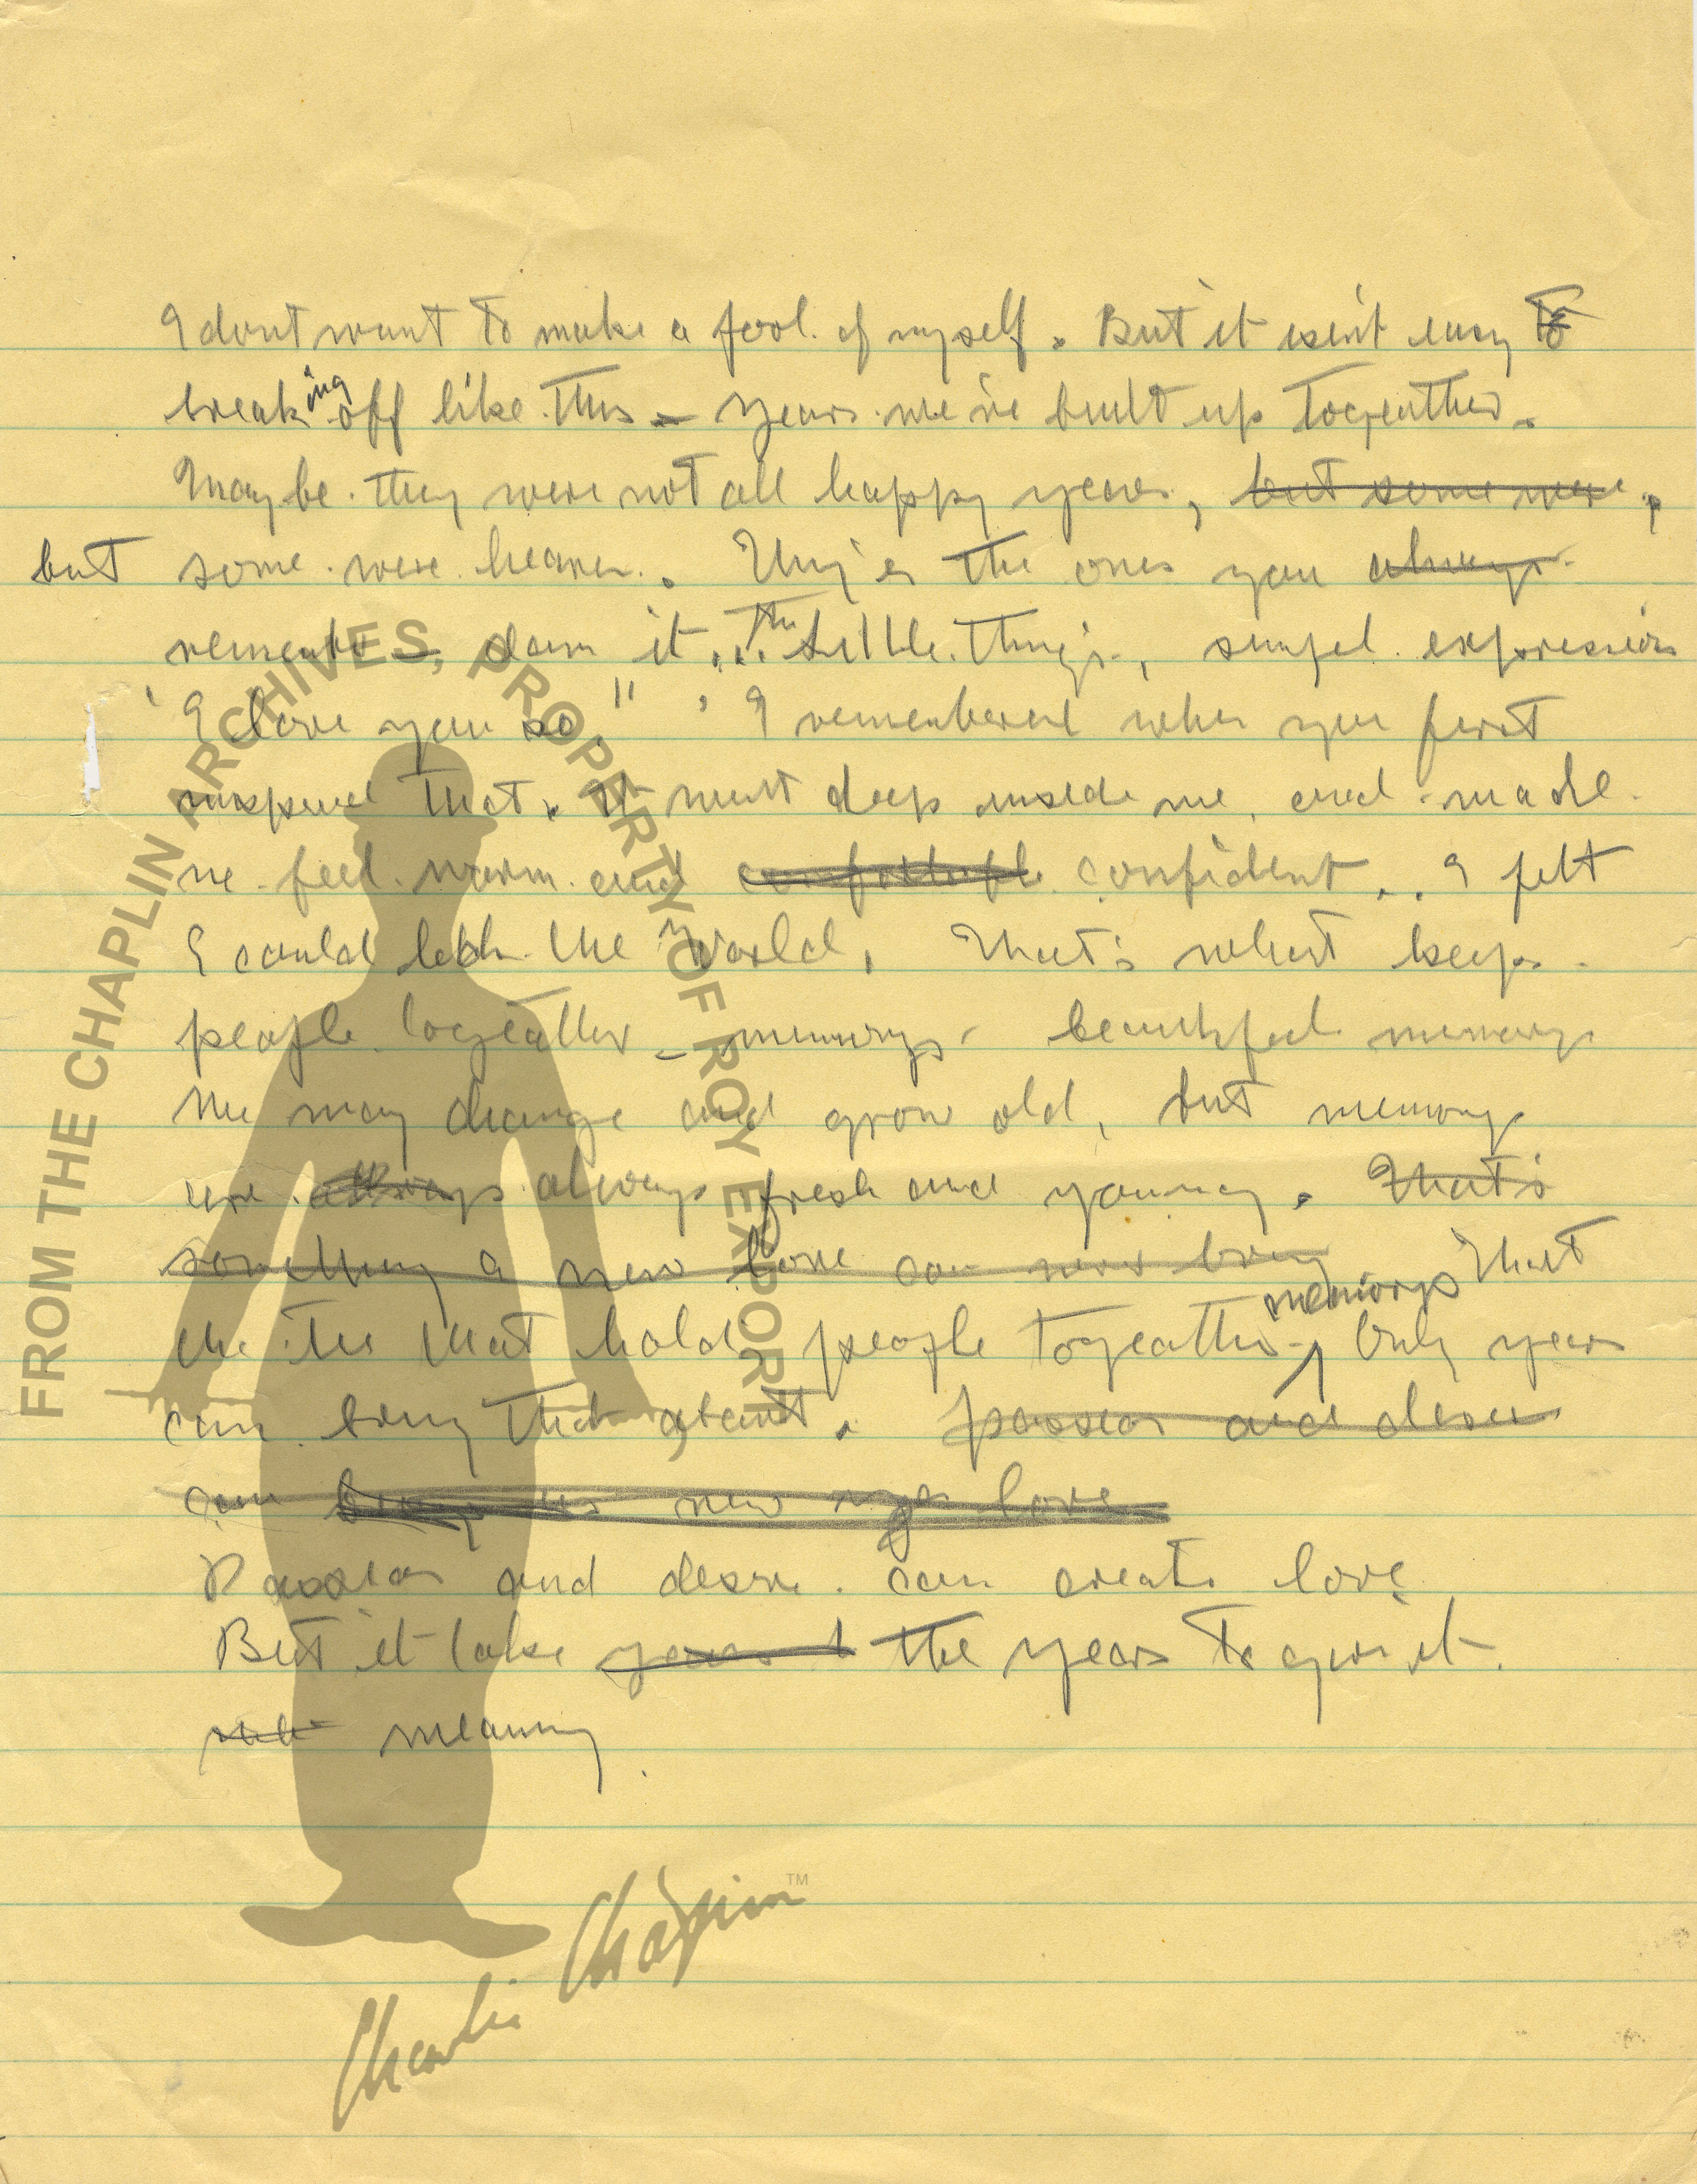 I dont want to make a fool of myself. But it isn't easy to
breaking off like this – years we've built up togeather.
Maybe they were not all happy years, but some were,
but some were heaven. They're the ones you always
remember damn it... the little things, simpel expression
"I love you so" I remembered when you first
wispered that. It went deep inside me, and made
me feel warm and comfortable confident.. I felt
I could lick the world, That's what keeps
people togeather – memorys – beautiful memorys
We may change and grow old, but memorys
are always always fresh and young. That's
something a new love can never bring That
the ties that holds people togeather – memorys Only years
can bring that about. passion and desire
can new love
Passion and desire can create love
But it take years t the years to give it
meaning
FROM THE CHAPLIN ARCHIVES, PROPERTY OF ROY EXPORT
Charlie Chaplin™